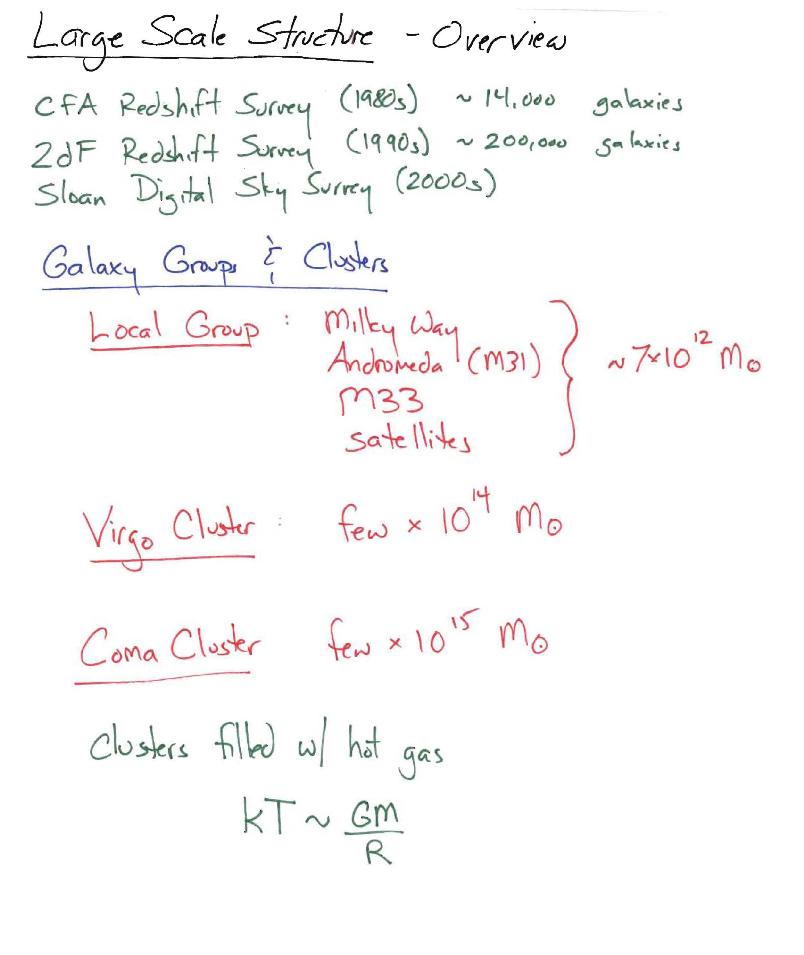 Large Scale Structure - Overview
CfA Redshift Survey (1980s) ~ 14,000 galaxies
2dF Redshift Survey (1990s) ~ 200,000 galaxies
Sloan Digital Sky Survey (2000s)
Galaxy Groups & Clusters
Local Group : Milky Way
Andromeda (M31)
M33
satellites
} ~ 7×10¹² M☉
Virgo Cluster : few × 10¹⁴ M☉
Coma Cluster few × 10¹⁵ M☉
Clusters filled w/ hot gas
kT ~ GM
R